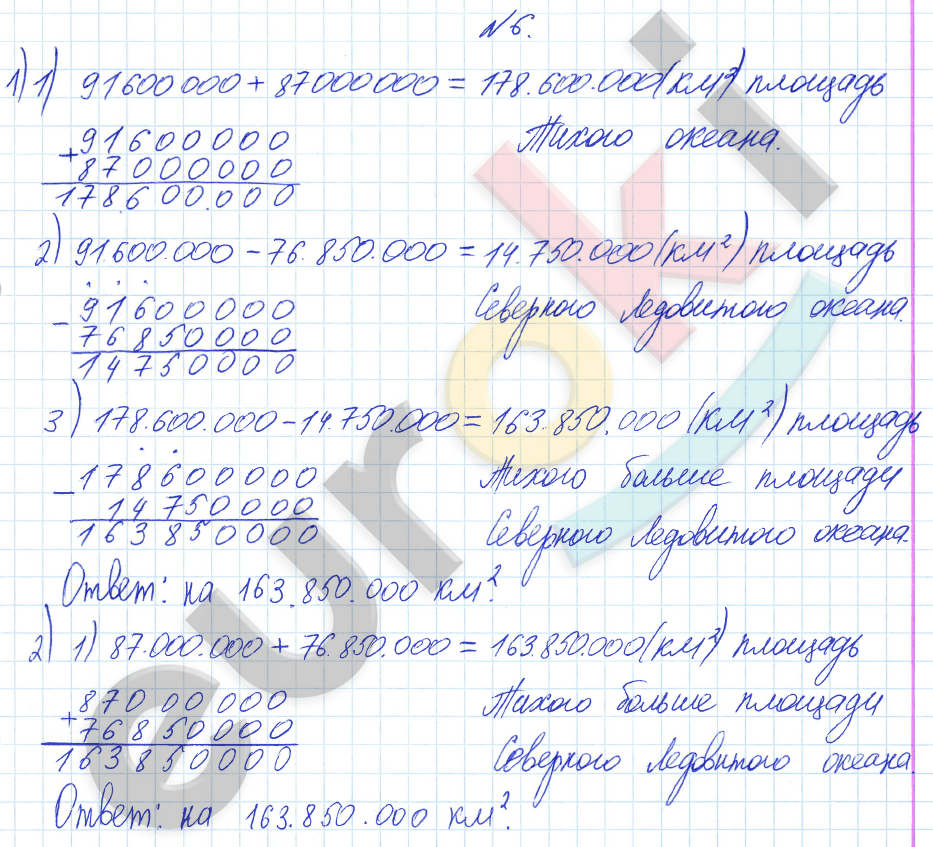 №6.
1) 1) 91600000 + 87000000 = 178.600.000 (км²) площадь
Тихого океана.
+ 91600000
87000000
178600.000
2) 91.600.000 - 76.850.000 = 14.750.000 (км²) площадь
Северного Ледовитого океана.
- 91600000
76850000
14750000
3) 178.600.000 - 14.750.000 = 163.850.000 (км²) площадь
Тихого больше площади
Северного Ледовитого океана.
- 178600000
14750000
163850000
Ответ: на 163.850.000 км².
2) 1) 87.000.000 + 76.850.000 = 163.850.000 (км²) площадь
Тихого больше площади
Северного Ледовитого океана.
+ 87000000
76850000
163850000
Ответ: на 163.850.000 км².
euroki